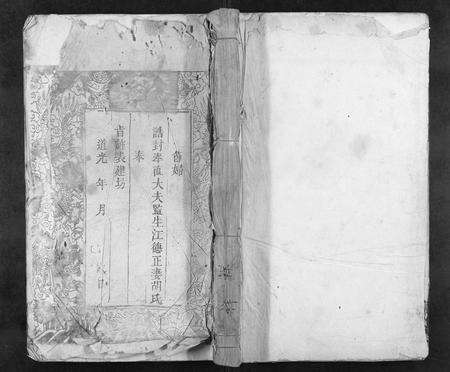 節婦
誥封奉直大夫監生江德正妻胡氏
奉
旨旌表建坊
道光 年 月